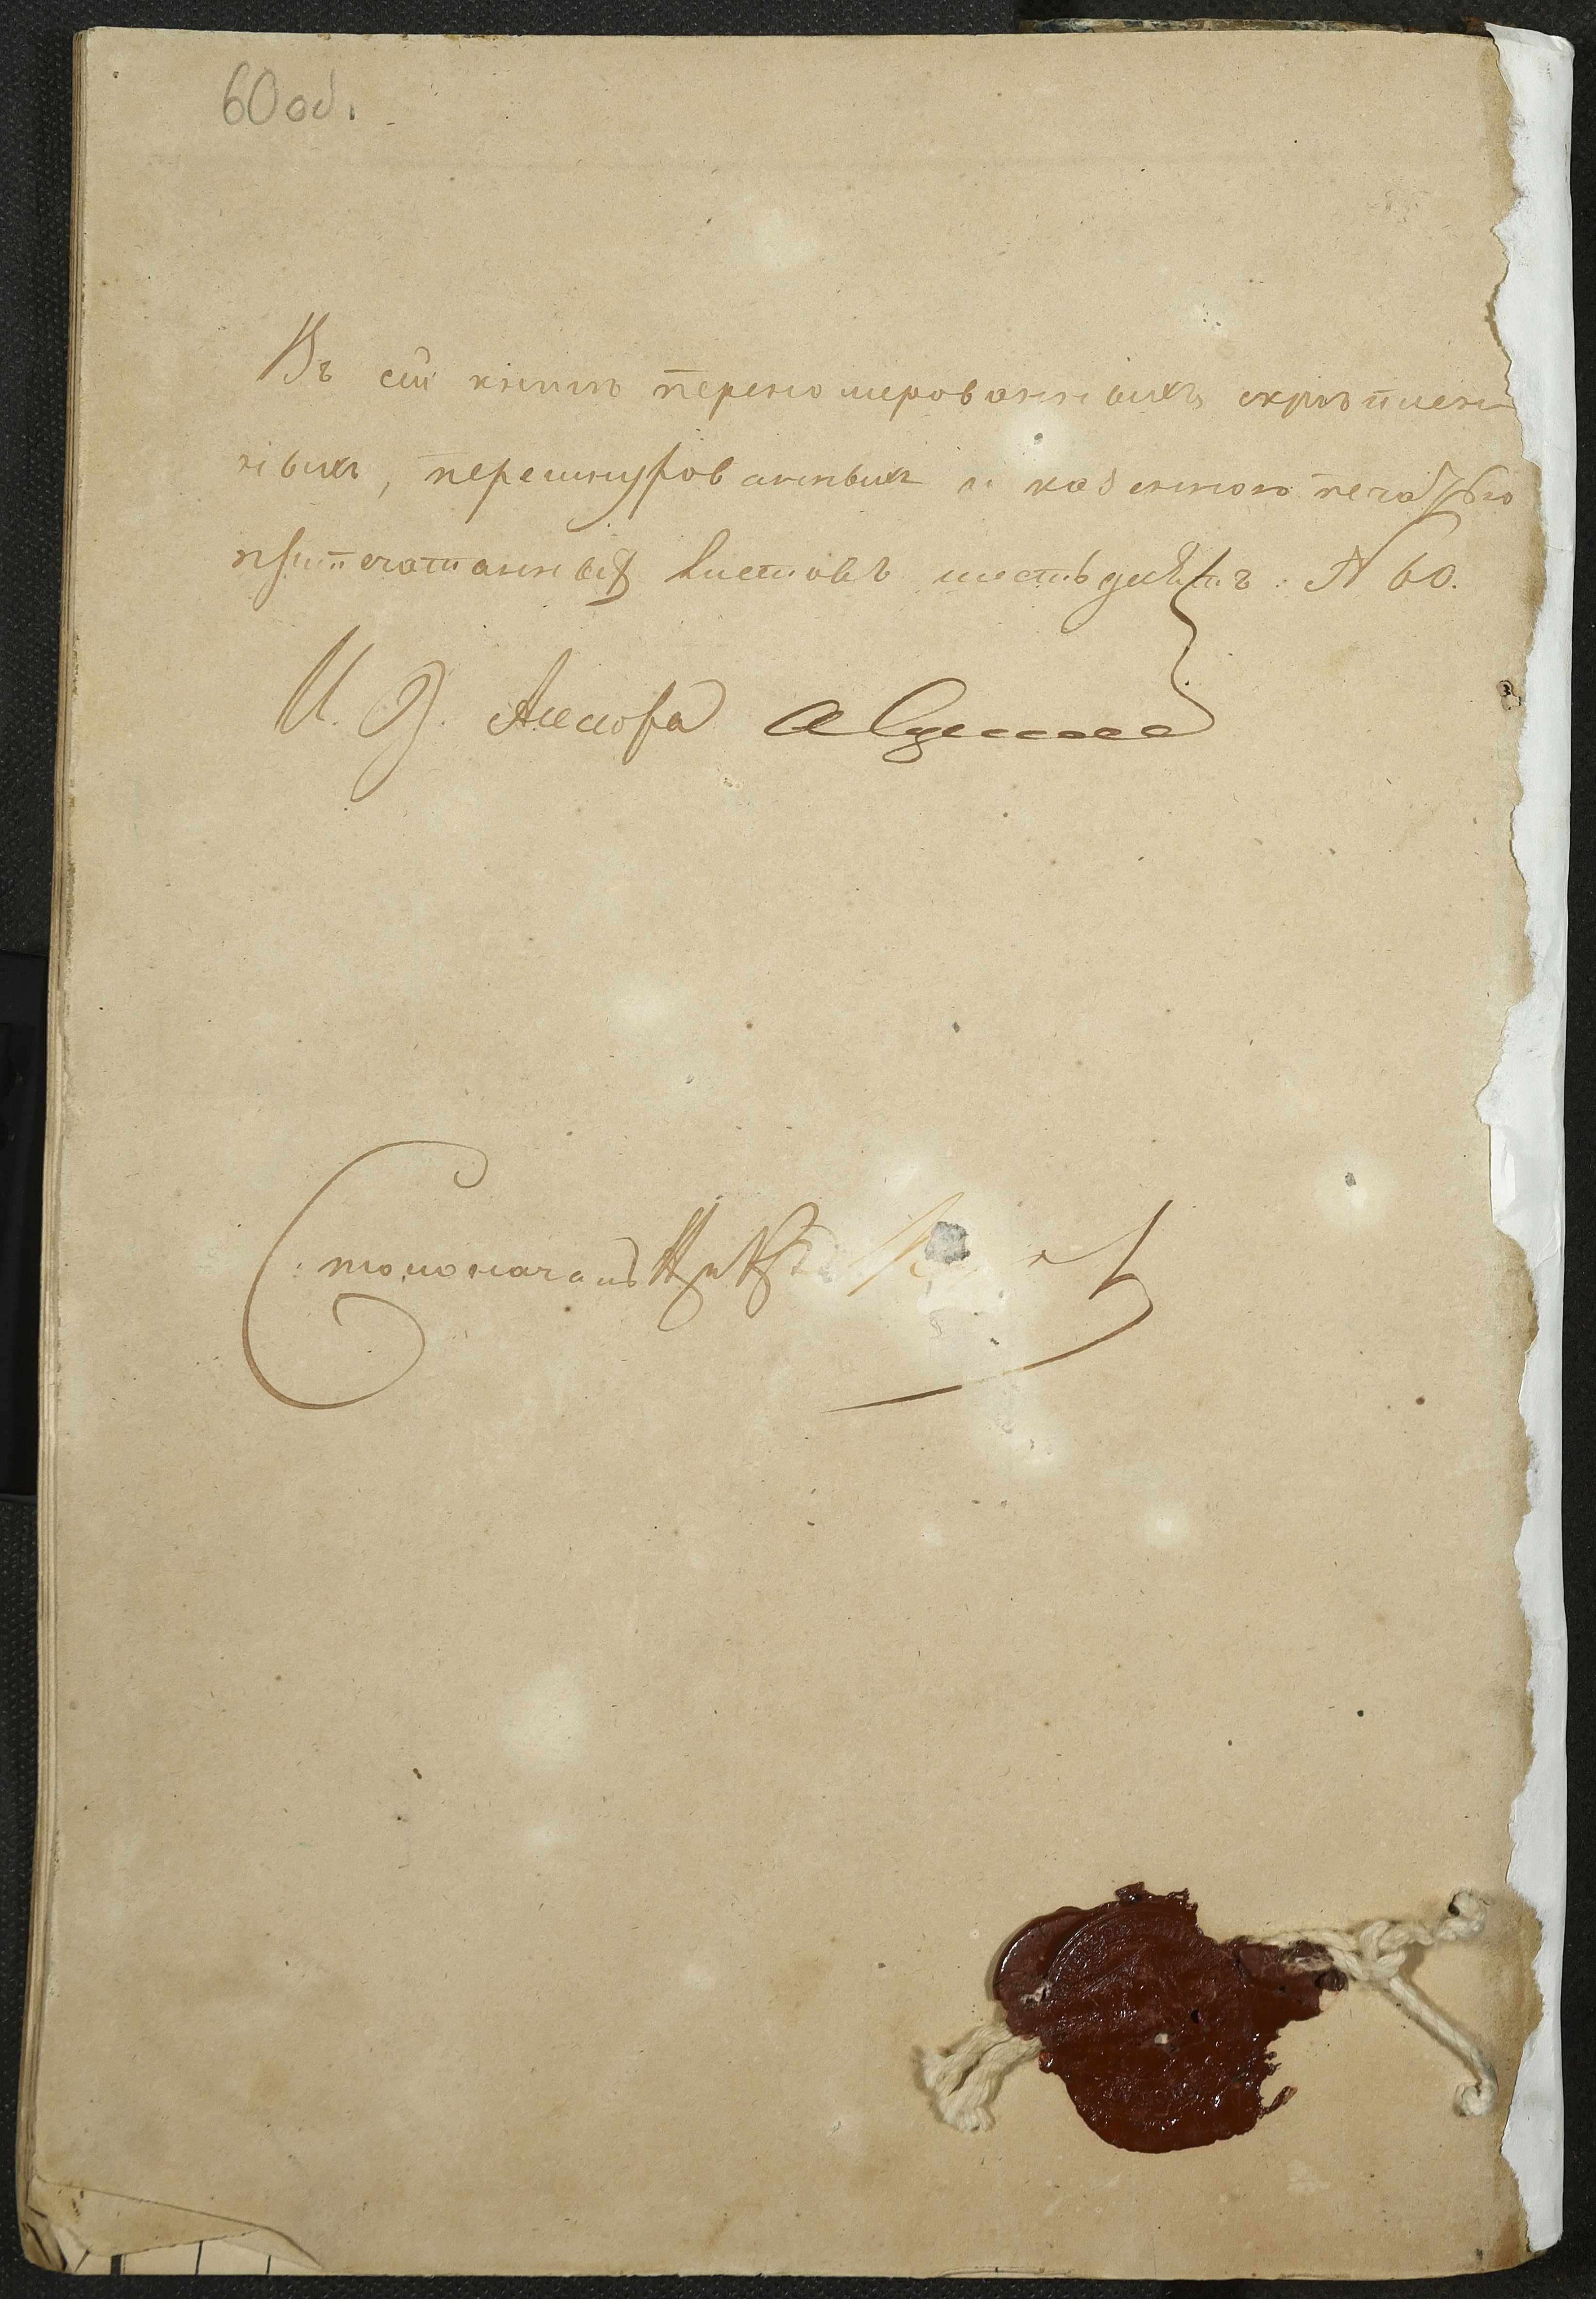 60 об.
Въ сей книгѣ перенумерованныхъ скрѣплен-
ныхъ, перешнурованныхъ и казенною печатью
припечатанныхъ листовъ шестьдесятъ: № 60.
И. Д. Ассесора
Столоначальникъ